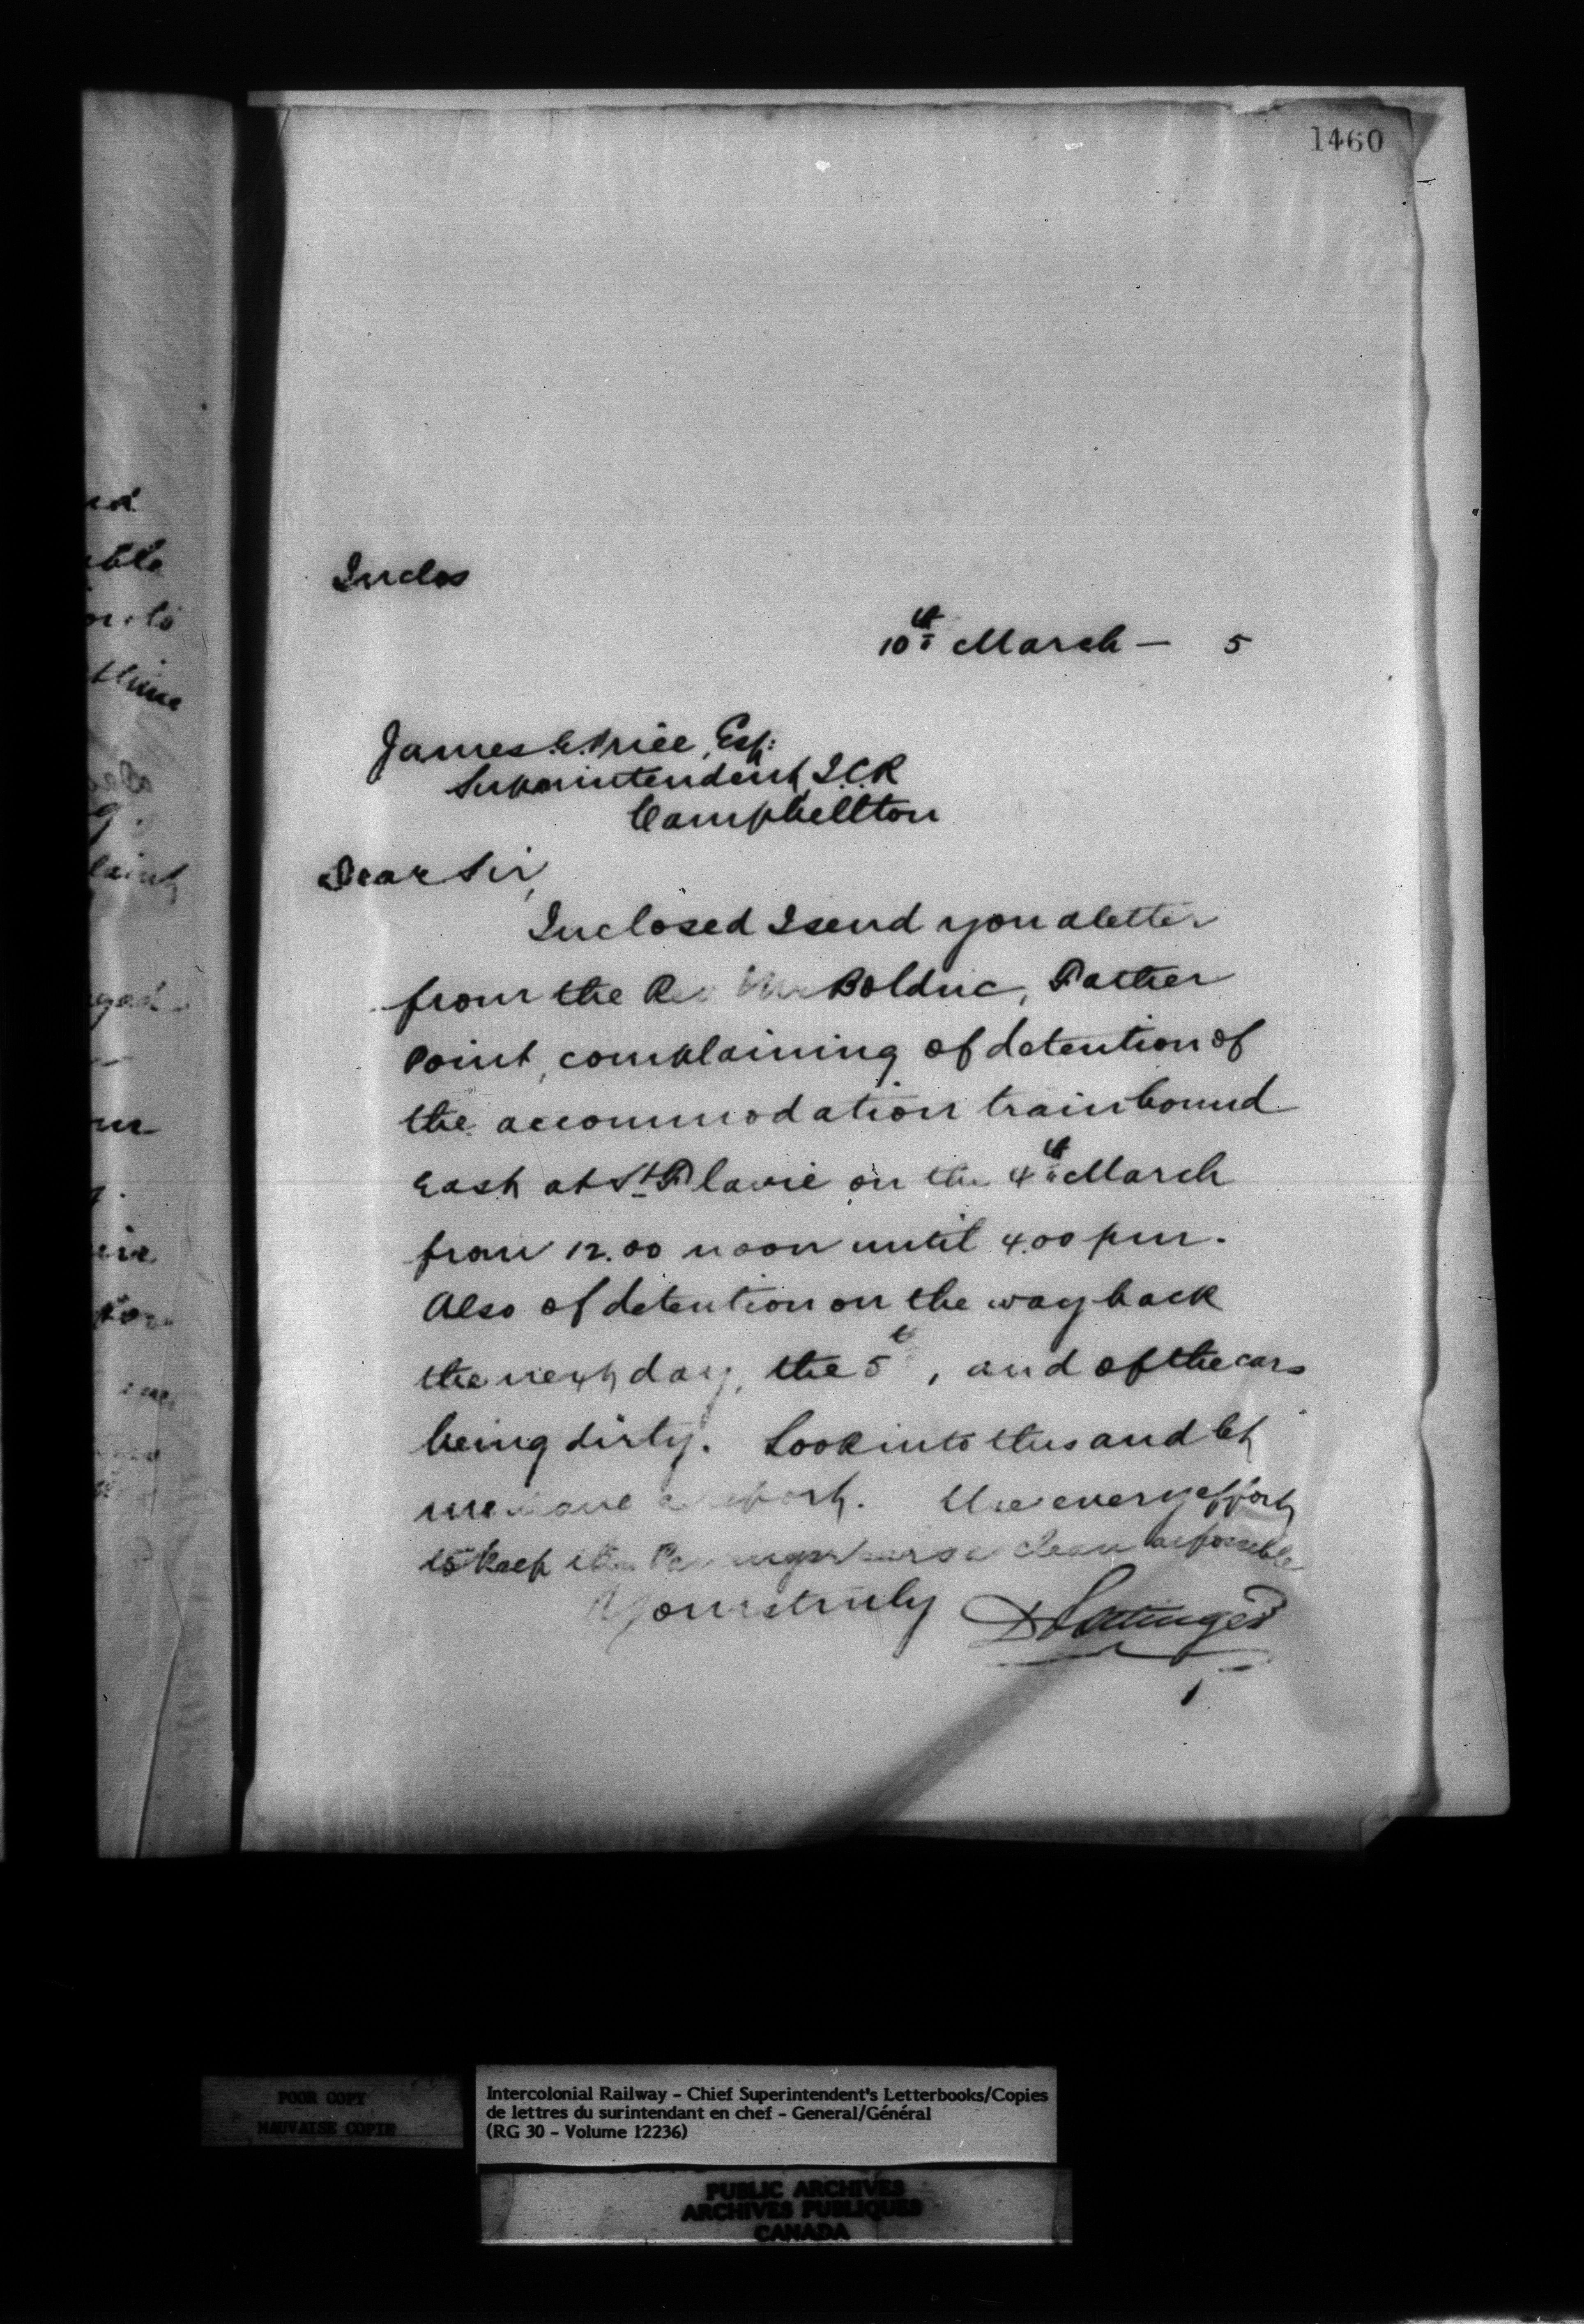 1460
Inclos
10th March — 5
James E. Price, Esq:
Superintendent, I.C.R
Campbellton
Dear Sir,
Inclosed I send you a letter
from the Rev Mr Bolduc, Father
Point, complaining of detention of
the accommodation train bound
East at St Flavie on the 4th March
from 12.00 noon until 4.00 pm.
Also of detention on the way back
the next day, the 5th, and of the cars
being dirty. Look into this and let
me have a report. Use every effort
to keep the Passenger cars as clean as possible
Yours truly D Pottinger
POOR COPY
MAUVAISE COPIE
Intercolonial Railway - Chief Superintendent's Letterbooks/Copies
de lettres du surintendant en chef - General/Général
(RG 30 - Volume 12236)
PUBLIC ARCHIVES
ARCHIVES PUBLIQUES
CANADA